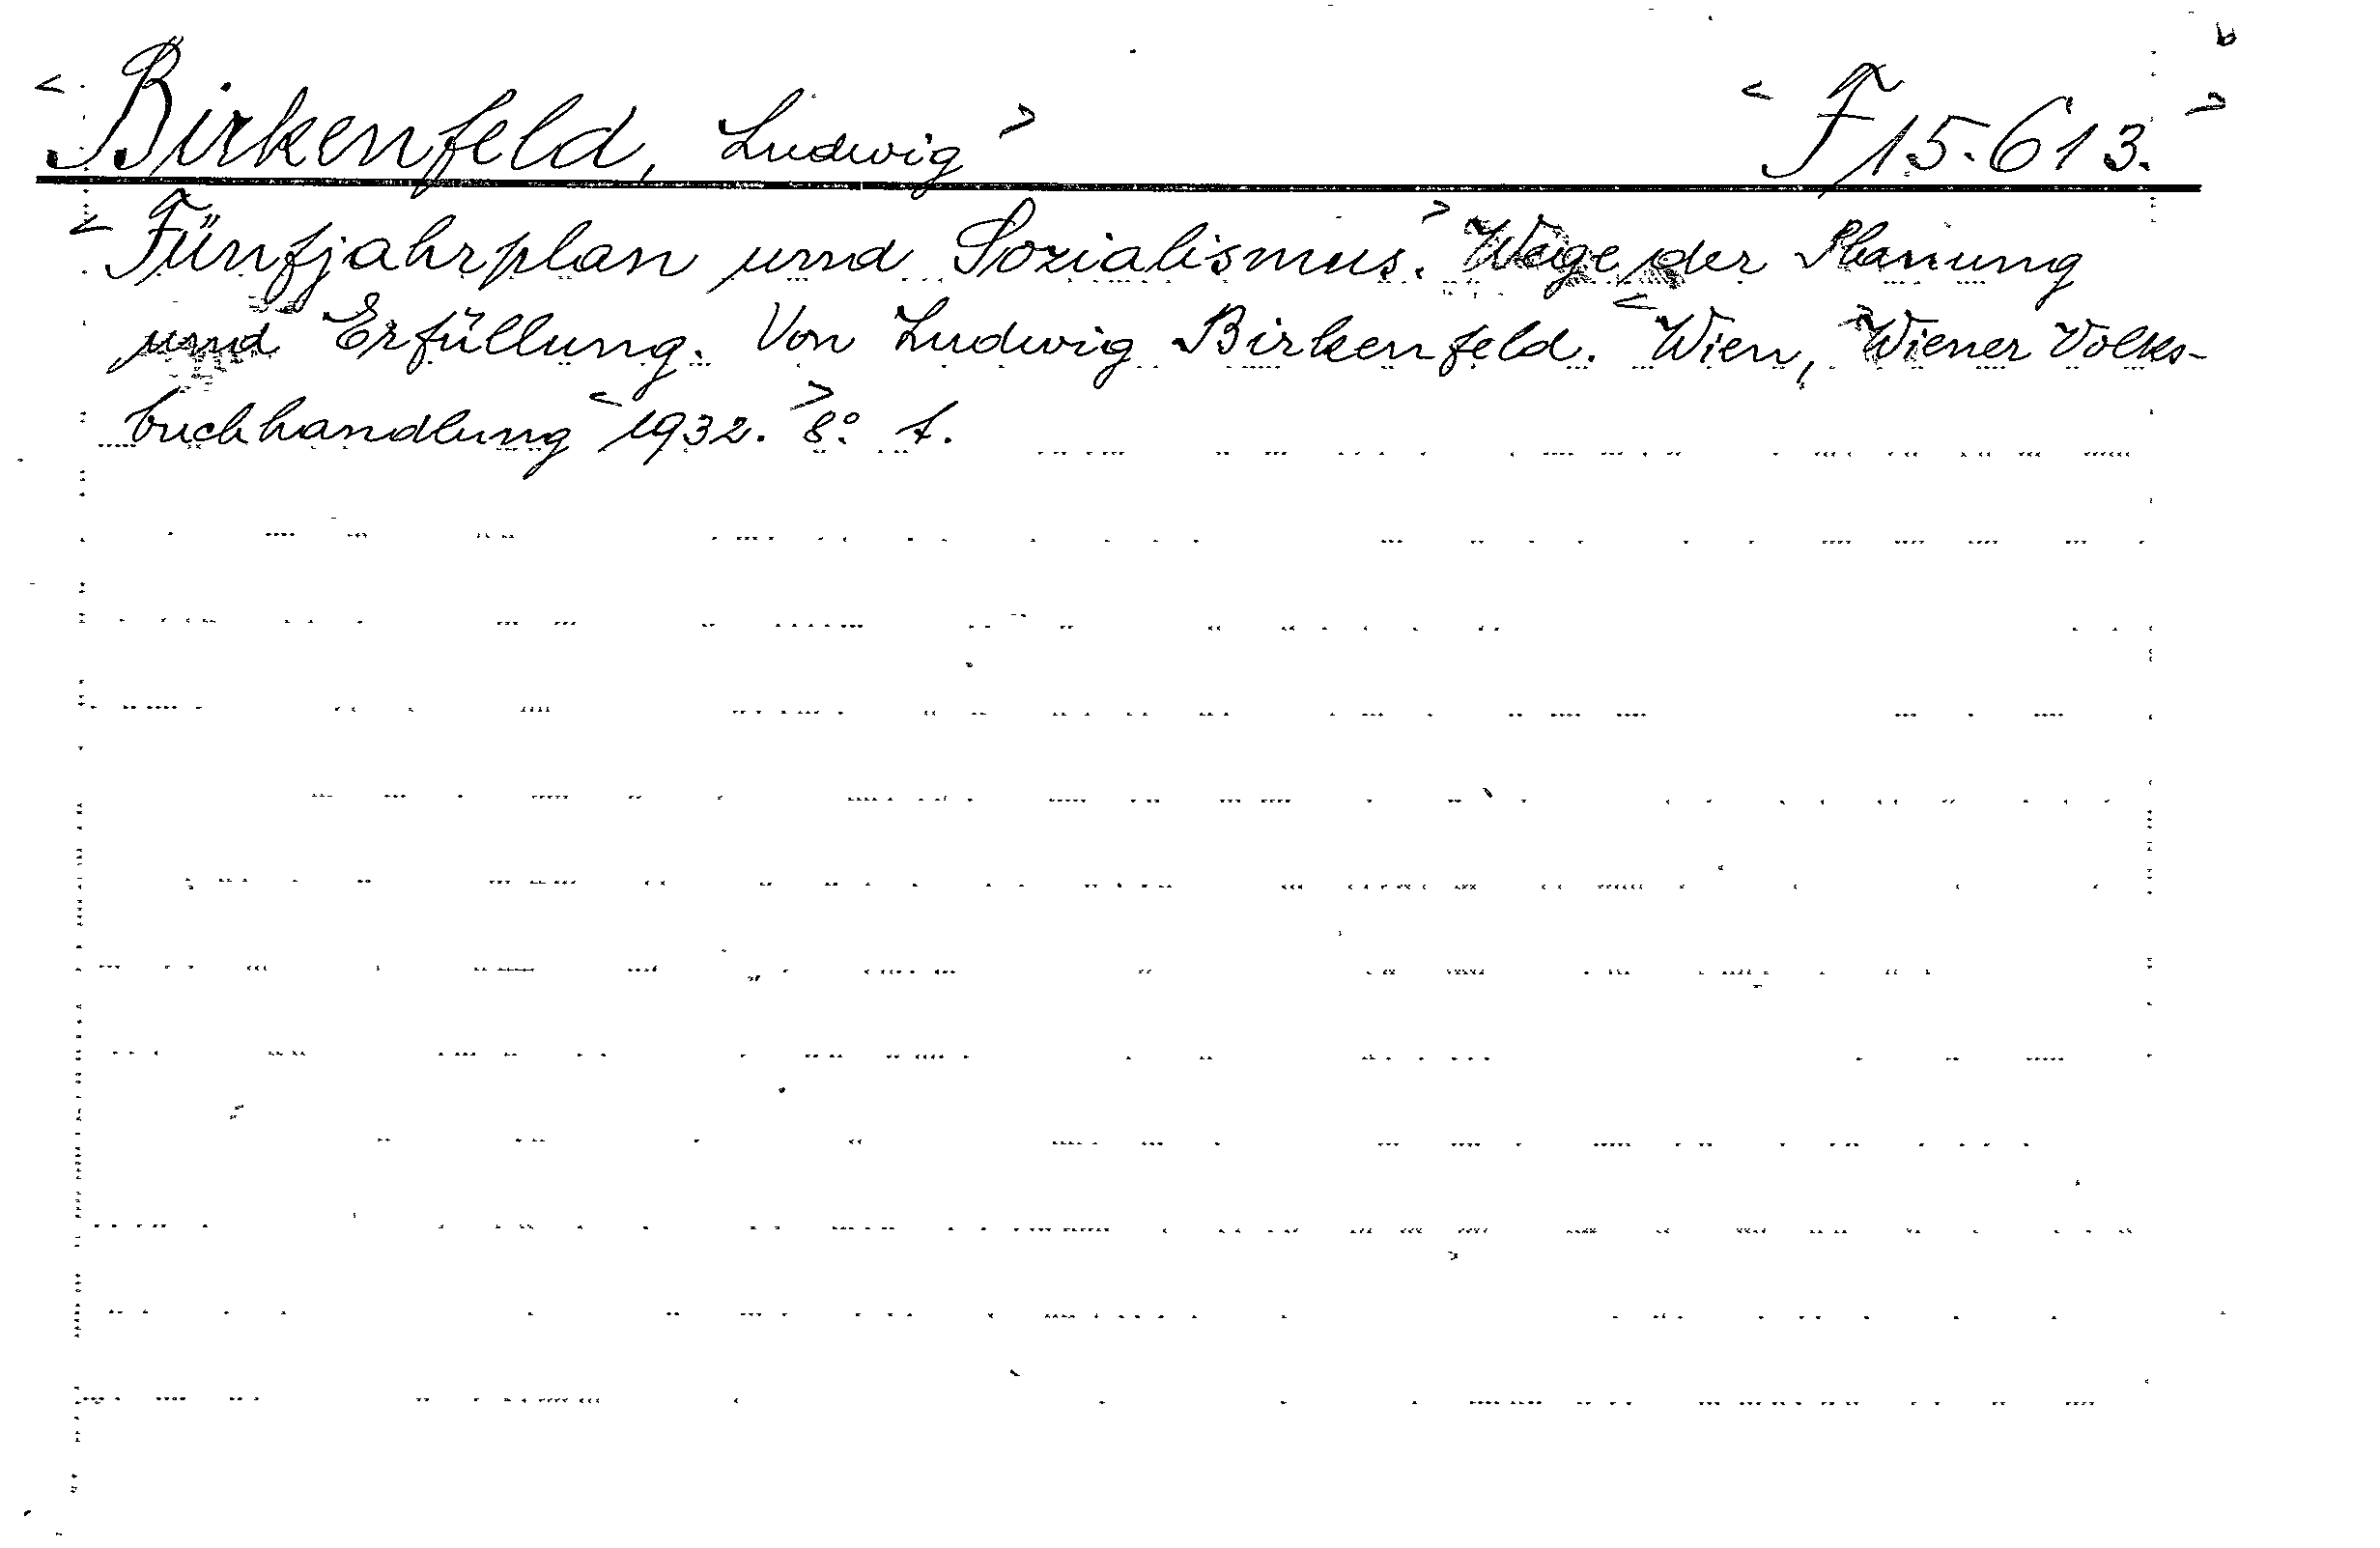 < Birkenfeld, Ludwig > < F 15.613. >
< Fünfjahrplan und Sozialismus. > Wege der Planung
und Erfüllung. Von Ludwig Birkenfeld. < Wien, > Wiener Volks-
buchhandlung < 1932. > 8°.